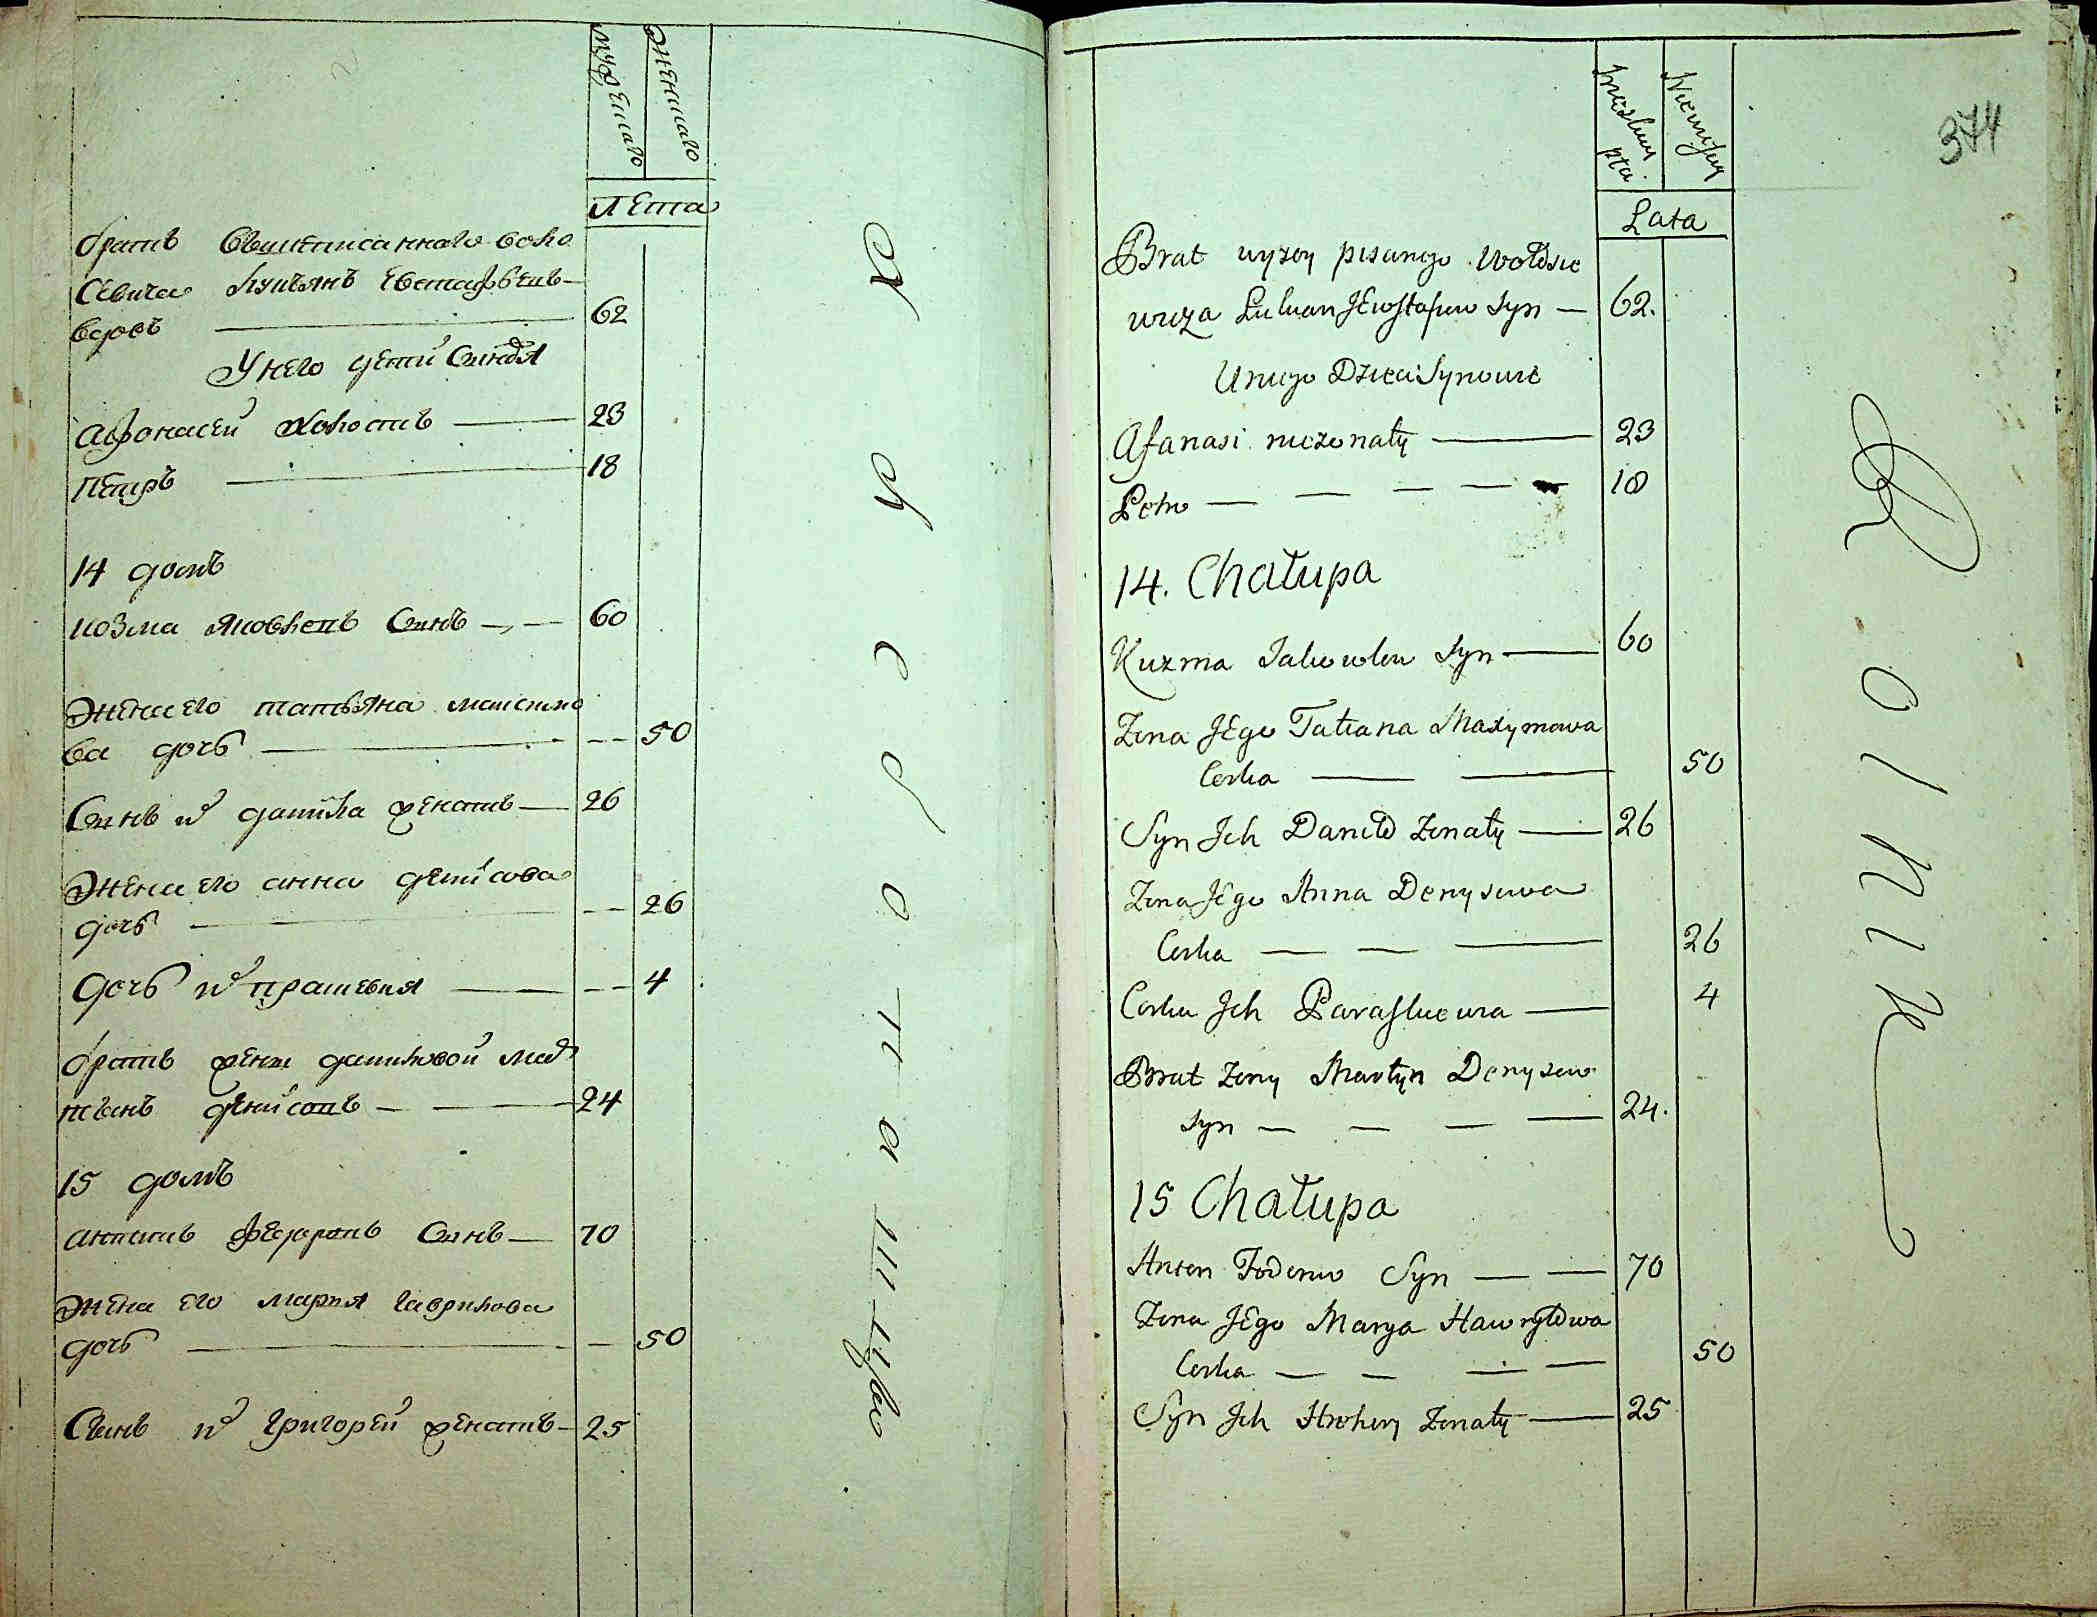 мужеска
женска
Лета
братъ вышеписанного воло
севича лукъянъ Евстафьевъ
62
У него дети сыновя
Афонасеи холостъ — 23
Петръ — 18
14 домъ
козма яковлевъ сынъ — 60
жена его татьяна максимо
ва дочь — 50
Сынъ их данила женатъ — 26
жена его анна денисова
дочь — 26
дочь их прасковия — 4
братъ жены даниловой мар
тынъ денисовъ — 24
15 домъ
антонъ федоровъ сынъ — 70
жена его мария гаврилова
дочь — 50
Сынъ их григореи женатъ — 25
374
płci
Lata
Brat wyzey pisanego Wołosie
wicza Lukian JEwstafiew Syn — 62.
Uniego Dzieci Synowie
Afanasi niezonaty — 23
Petro — — — — — 18
14. Chałupa
Kuzma Jakowlew Syn — 60
Zona JEgo Tatiana Maxymowa
Corka — — 50
Syn Jch Daniło Zonaty — 26
Zona JEgo Anna Denysowa
Corka — — — 26
Corka Jch Paraskiewia — 4
Brat Zony Martyn Denysow
Syn — — — — 24.
15 Chałupa
Anton Fodorow Syn — — 70
Zona JEgo Marya Hawryłowa
Corka — — — — 50
Syn Jch Hrehory Zonaty — 25
Rolnik